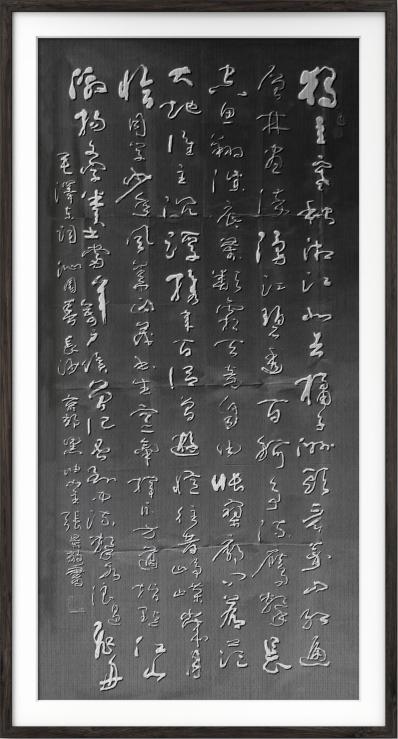 獨立寒秋湘江北去橘子洲頭看萬山紅遍
層林盡染漫江碧透百舸爭流鷹擊長
空魚翔淺底萬類霜天競自由悵寥廓問蒼茫
大地誰主沉浮攜來百侣曾遊憶往昔崢嶸歲月
恰同學少年風華正茂書生意氣揮斥方遒指點江山
激揚文字糞土當年萬户侯曾记否到中流擊水浪遏飛舟
毛澤东詞 沁園春 長沙